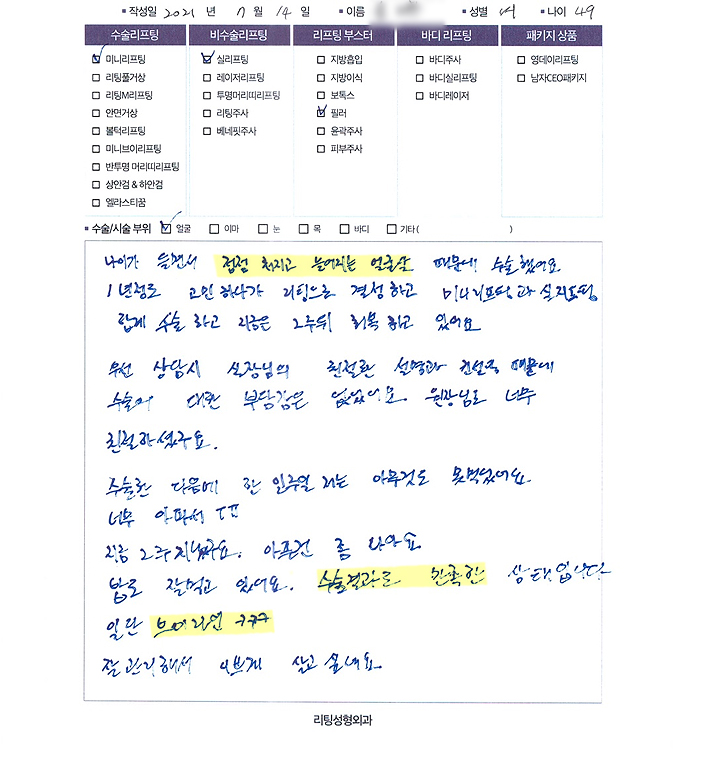 ▪작성일 2021 년 7 월 14 일 ▪이름 ▪성별 여 ▪나이 49
수술리프팅 비수술리프팅 리프팅 부스터 바디 리프팅 패키지 상품
미니리프팅 실리프팅 지방흡입 바디주사 영데이리프팅
리팅풀거상 레이저리프팅 지방이식 바디실리프팅 남자CEO패키지
리팅M리프팅 투명머리띠리프팅 보톡스 바디레이저
안면거상 리팅주사 필러
볼턱리프팅 베네핏주사 윤곽주사
미니브이리프팅 피부주사
반투명 머리띠리프팅
상안검 & 하안검
엘라스티꿈
▪수술/시술 부위 얼굴 이마 눈 목 바디 기타( )
나이가 들면서 점점 쳐지고 늘어지는 얼굴살 때문에 수술했어요
1년정도 고민하다가 리팅으로 결정하고 미니리프팅과 실리프팅
함께 수술하고 지금은 2주뒤 회복하고 있어요
우선 상담시 실장님의 친절한 설명과 때문에
수술에 대한 부담감은 없었어요. 원장님도 너무
친절하셨구요.
수술한 다음에 한 일주일 아무것도 못먹었어요.
너무 아파서 ㅠㅠ
지금 2주지났구요. 아픈건 좀 나아요
밥도 잘먹고 있어요. 수술결과도 만족한 상태입니다
일단 브이라인 ㅋㅋㅋ
잘관리해서 이쁘게 살고 싶네요.
리팅성형외과